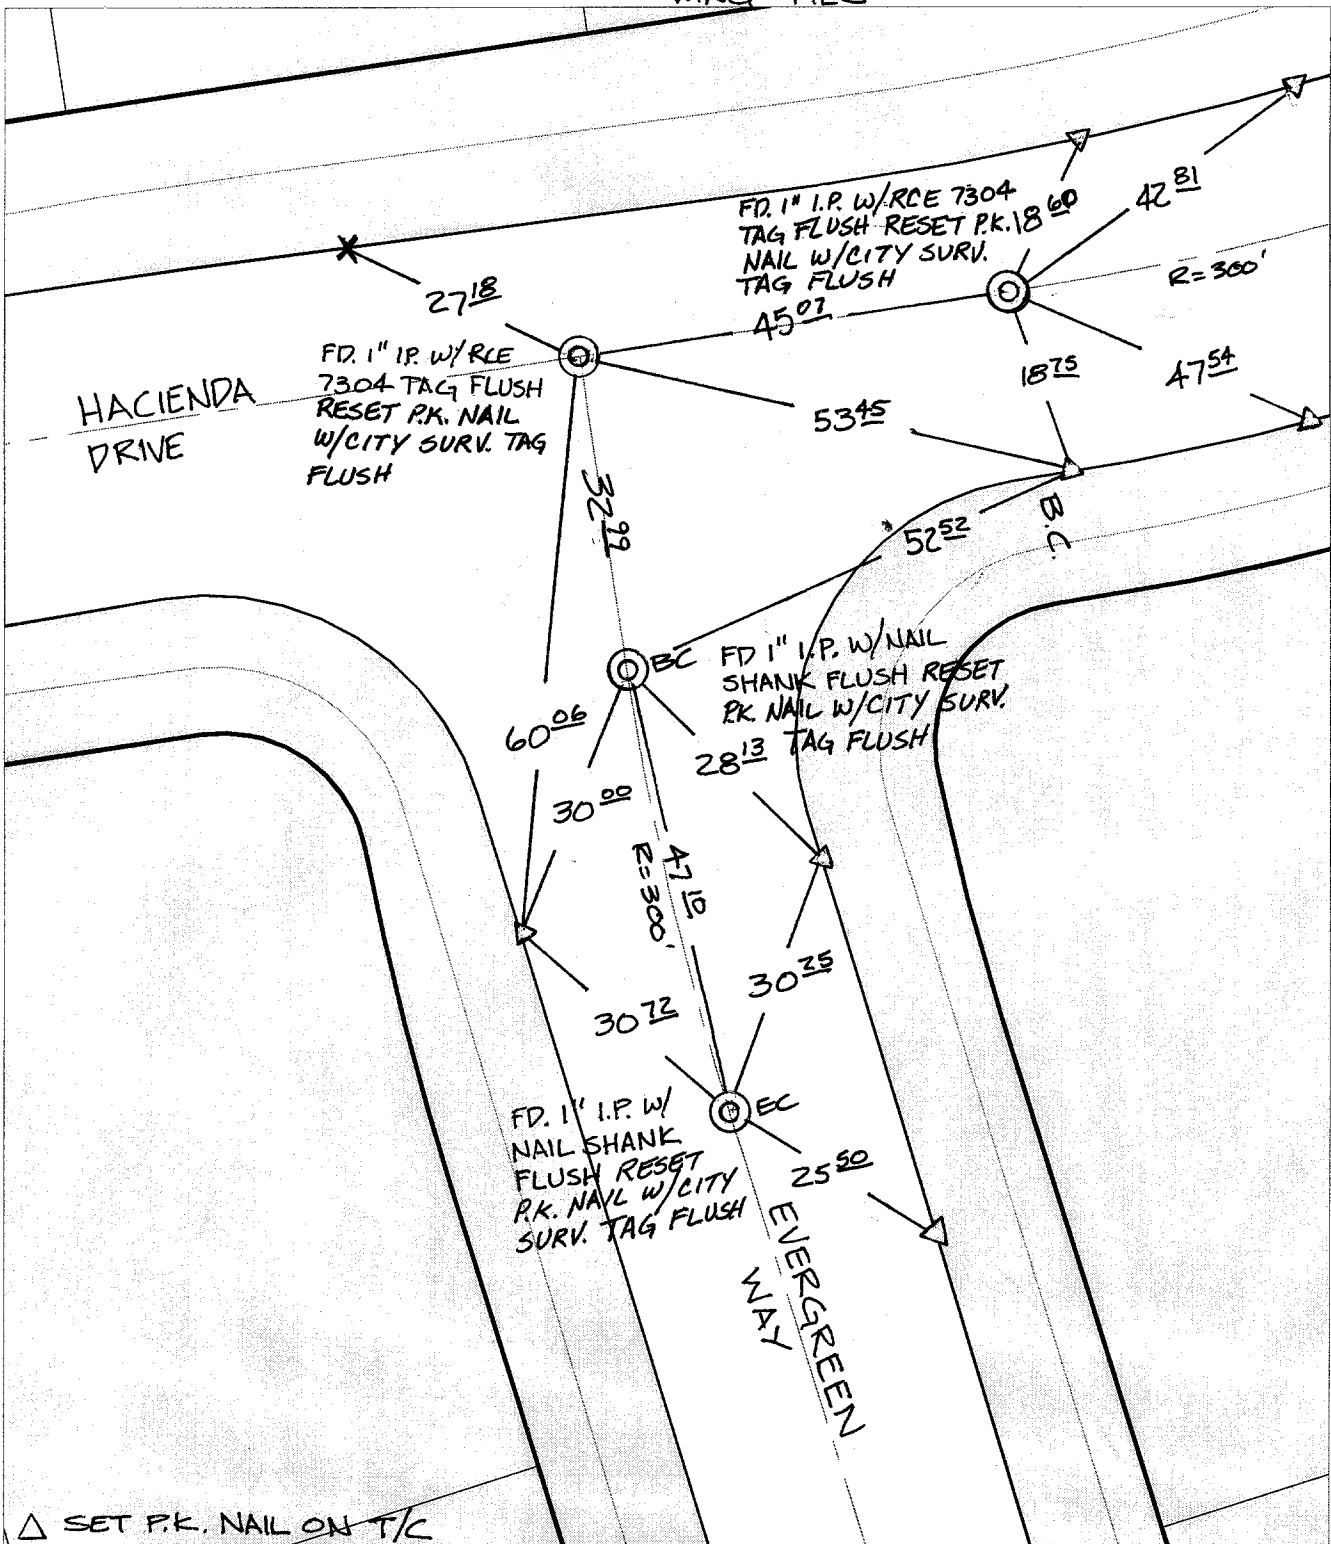 FD. 1" I.P. W/RCE 7304
TAG FLUSH RESET P.K.
NAIL W/CITY SURV.
TAG FLUSH
18 60
42 81
R=300'
27 18
45 07
FD. 1" I.P. W/RCE
7304 TAG FLUSH
RESET P.K. NAIL
W/CITY SURV. TAG
FLUSH
HACIENDA
DRIVE
18 75
47 54
53 45
32 99
52 52
B.C.
BC
FD 1" I.P. W/NAIL
SHANK FLUSH RESET
P.K. NAIL W/CITY SURV.
TAG FLUSH
60 06
28 13
30 00
47 10
R=300'
30 25
30 72
EC
FD. 1" I.P. W/
NAIL SHANK
FLUSH RESET
P.K. NAIL W/CITY
SURV. TAG FLUSH
25 50
EVERGREEN
WAY
△ SET P.K. NAIL ON T/C